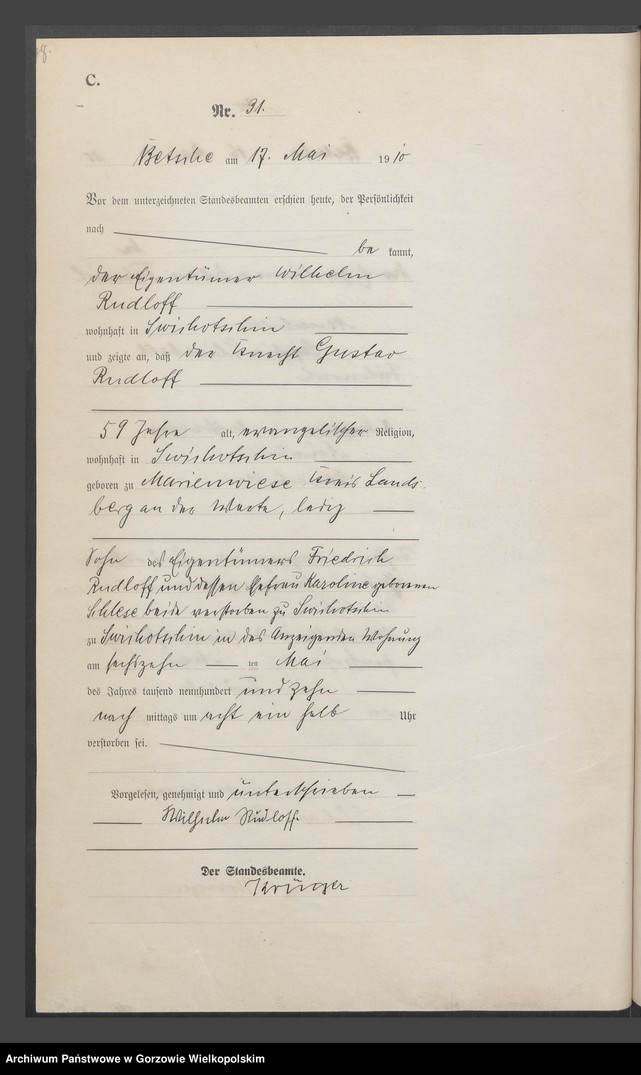 C.
Nr. 31.
Betsche am 17. Mai 1910
Vor dem unterzeichneten Standesbeamten erschien heute, der Persönlichkeit
nach
be kannt,
der Eigentümer Wilhelm
Rudloff
wohnhaft in Swichotschin
und zeigte an, daß der Knecht Gustav
Rudloff
59 Jahre alt, evangelischer Religion,
wohnhaft in Swichotschin
geboren zu Marienwiese Kreis Lands-
berg an der Warte, ledig
Sohn des Eigentümers Friedrich
Rudloff und dessen Ehefrau Karoline geborenen
beide verstorben zu Swichotschin
zu Swichotschin in des Anzeigenden Wohnung
am sechszehn ten Mai
des Jahres tausend neunhundert und zehn
nach mittags um acht ein halb Uhr
verstorben sei.
Vorgelesen, genehmigt und unterschrieben
Wilhelm Rudloff.
Der Standesbeamte.
Krüger
Archiwum Państwowe w Gorzowie Wielkopolskim